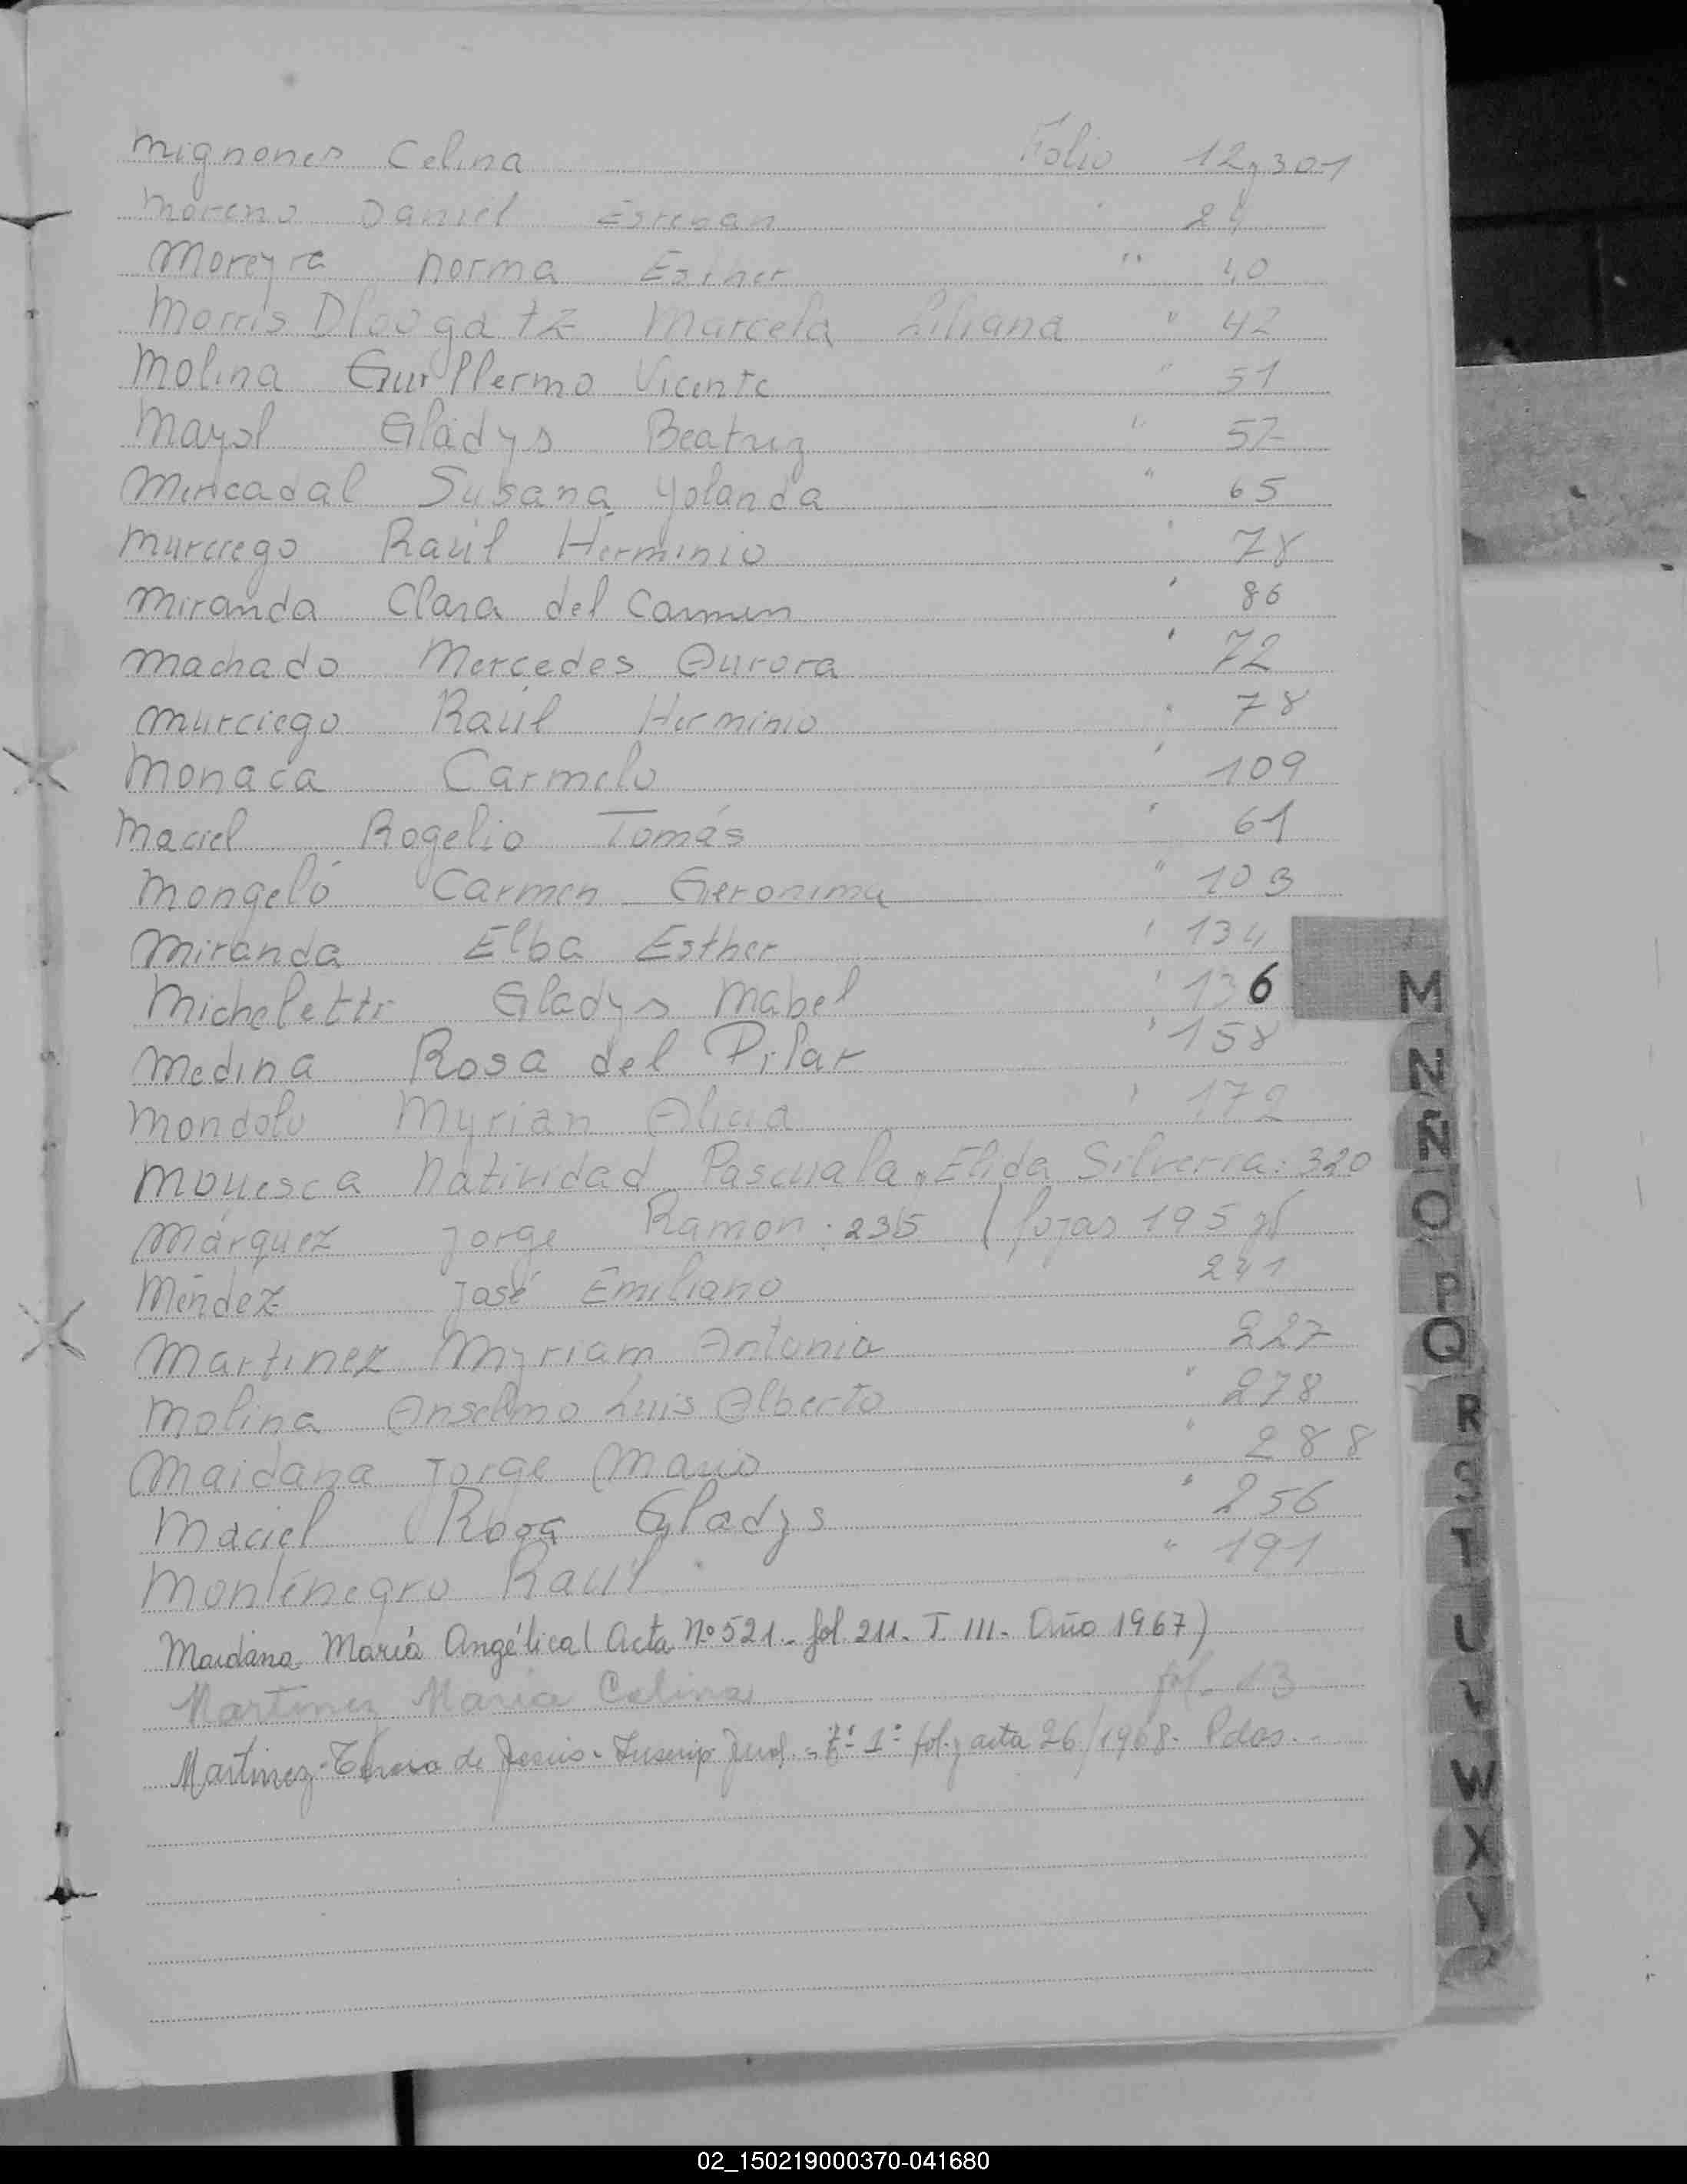 Mignones Celina Folio 12y301
Moreno Daniel Esteban " 24
Moreyra Norma Ester " 40
Morris Dloogatz Marcela Liliana " 42
Molina Guillermo Vicente " 51
Mayol Gladys Beatriz " 57
Mercadal Susana Yolanda " 65
Murciego Raúl Herminio " 78
Miranda Clara del Carmen " 86
Machado Mercedes Aurora " 72
Murciego Raúl Herminio " 78
Monaca Carmelo " 109
Maciel Rogelio Tomás " 61
Mongeló Carmen Geronima " 103
Miranda Elba Esther " 134
Micheletti Gladys Mabel " 136
Medina Rosa del Pilar " 158
Mondolo Myrian Alicia " 172
Moyesca Natividad Pascuala. Elida Silverra: 320
Márquez Jorge Ramon: 235 (fojas 195
Méndez José Emiliano 241
Martinez Myriam Antonia 227
Molina Anselmo Luis Alberto " 278
Maidana Jorge Mario " 288
Maciel Rosa Gladys " 256
Montenegro Raúl " 191
Maidana María Angélica (Acta Nº 521 - fol 211. T. III. Año 1967)
Martinez María Celina fol. 13
Martinez - Teresa de Jesús - Inscrip. Jud. - tº 1º fol. y acta 26/1968. Pdos. -
M
N
Ñ
O
P
Q
R
S
T
U
V
W
X
Y
02_150219000370-041680